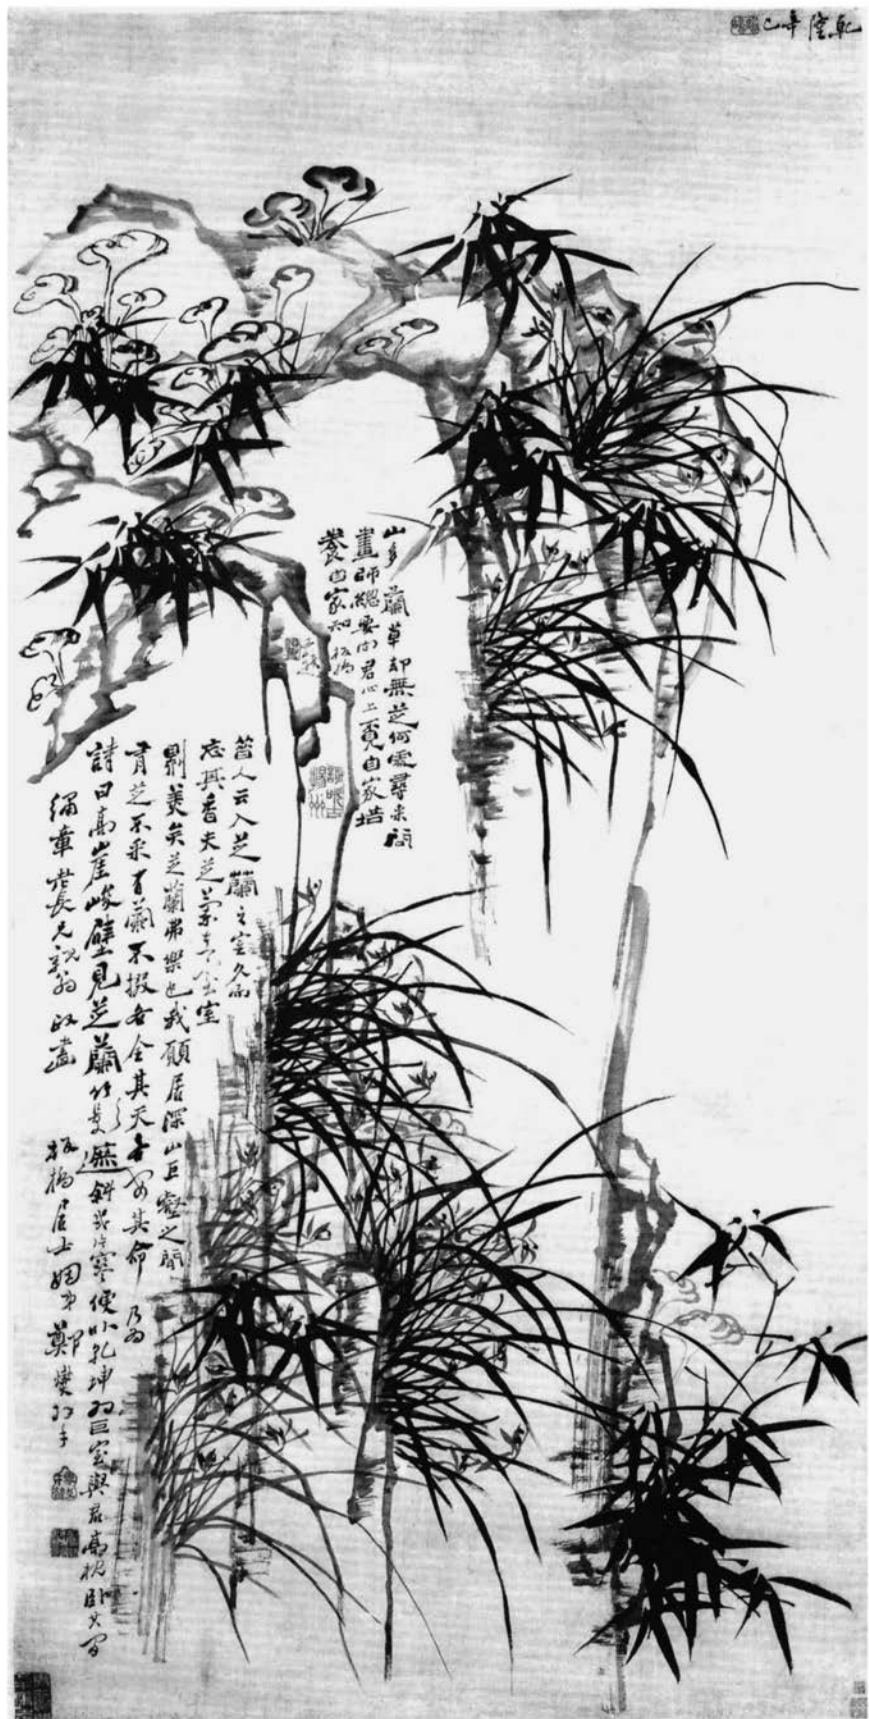 乾隆辛巳
山多蘭草却無芝何處尋來問
畫師總要向君心上覓自家培
養自家知 板橋
昔人云入芝蘭之室久而
忘其香夫芝蘭入室室
則美矣芝蘭弗樂也我願居深山巨壑之間
有芝不采有蘭不掇各全其天各安其命乃為
詩曰高崖峻壁見芝蘭竹影遮斜幾片寒便以乾坤為巨室與君高枕臥其間
章世長兄親翁政畫 板橋居士姻弟鄭燮